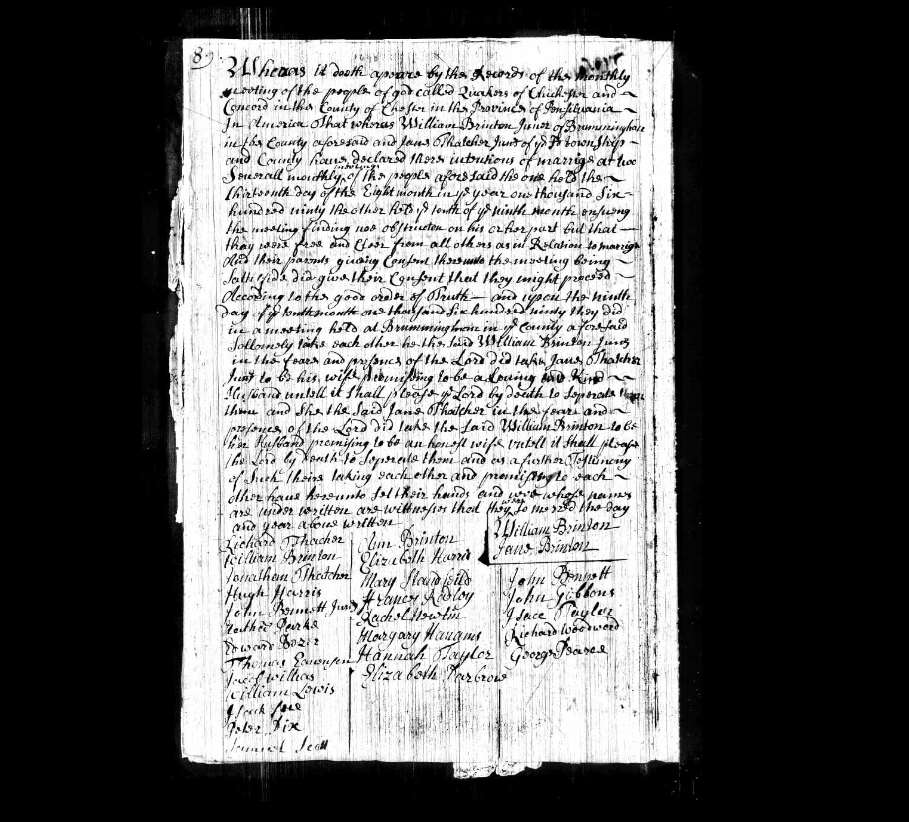 8
Whereas it doeth apeare by the Records of the Monthly
meeting of the people of god called Quakers of Chichester and
Concord in the County of Chester in the Province of Pensilvania
In America That whereas William Brinton Juner of Brumminghem
in the County aforesaid and Jane Thatcher Junr of ye Township
and County have declared there intentions of marrige at two
Severall monthly meetings of the people aforesaid the one held the
thirteenth day of the Eight month in ye year one thousand six
hundred ninty the other held ye tenth of ye ninth month ensueng
the meeting finding noe obstructon on his or her part but that
they were free and Cleer from all others as in Relation to marrige
And their parents giveing Consent thereunto the meeting being
Satisfide did give their Consent that they might proceed
According to the good order of Truth and upon the ninth
day of ye tenth month one thousand six hundred ninty they did
in a meeting held at Brumminghem in ye County aforesaid
Sollomely take each other he the said William Brinton Junr
in the feare and presence of the Lord did take Jane Thatcher
Junr to be his wife promissing to be a Loveing and Kind
Husband untell it shall please ye Lord by death to seperate
them and She the said Jane Thatcher in the feare and
presence of the Lord did take the said William Brinton to be
her Husband promising to be an honest wife untell it shall please
the Lord by Death to seperate them and as a further Testimony
of Such theire taking each other and promising to each
other have hereunto set their hands and wee whose names
are under written are wittneses that they were so merred the day
and year above written
William Brinton
Jane Brinton
Richard Thacher
William Brinton
Jonathan Thatcher
Hugh Harris
John Bennett Junr
Edward Bezer
Thomas
William Lewis
Peter Dix
Samuel Scott
Ann Brinton
Elizabeth Harris
Mary
Frances
Rachel Newlin
Margary
Hannah Taylor
Elizabeth
John Bennett
John Gibbons
Isace Taylor
Richard Woodward
George Pearce